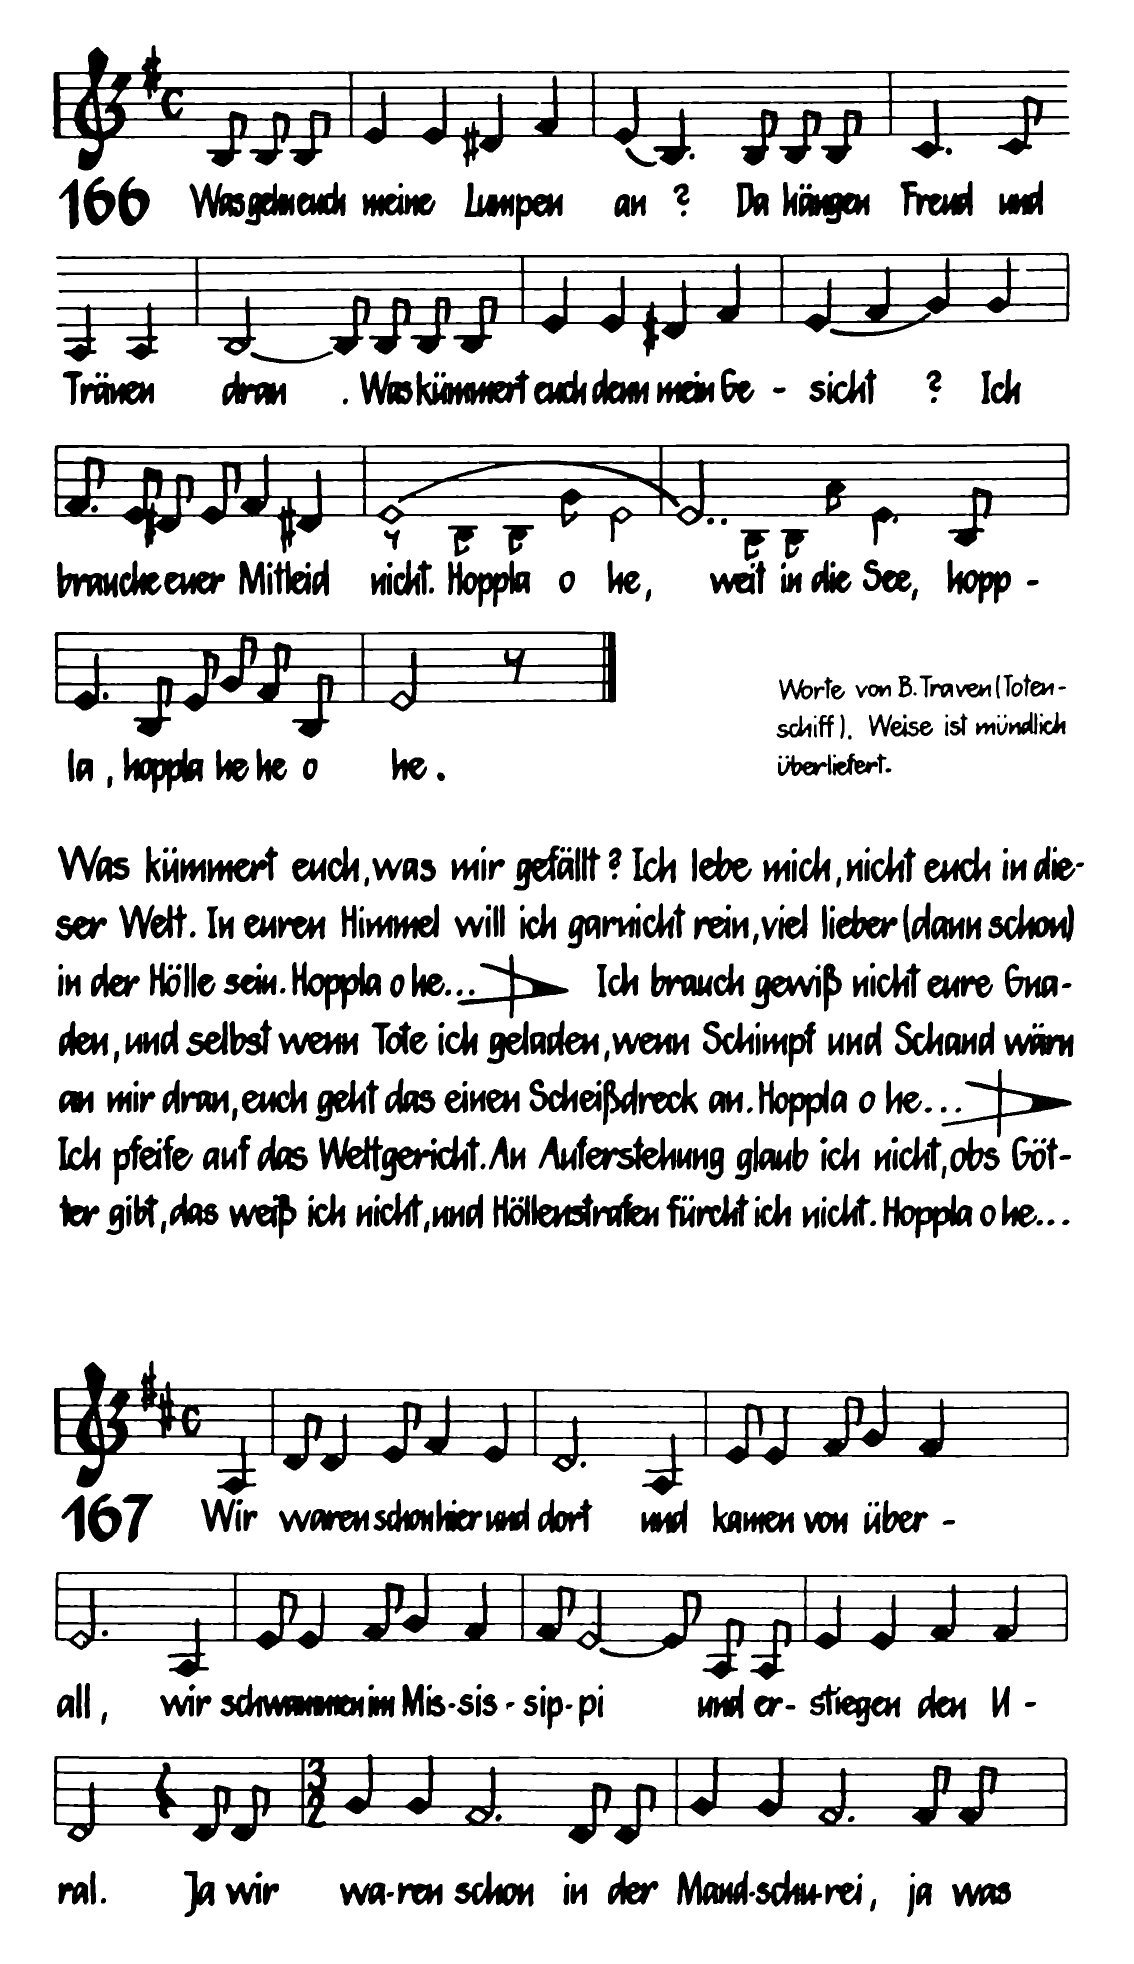 166 Was gehn euch meine Lumpen an ? Da hängen Freud und
Tränen dran . Was kümmert euch denn mein Ge - sicht ? Ich
brauche euer Mitleid nicht. Hoppla o he, weit in die See, hopp -
la , hoppla he he o he .
Worte von B. Traven (Toten-
schiff). Weise ist mündlich
überliefert.
Was kümmert euch, was mir gefällt ? Ich lebe mich, nicht euch in die-
ser Welt. In euren Himmel will ich garnicht rein, viel lieber (dann schon)
in der Hölle sein. Hoppla o he... Ich brauch gewiß nicht eure Gna-
den, und selbst wenn Tote ich geladen, wenn Schimpf und Schand wärn
an mir dran, euch geht das einen Scheißdreck an. Hoppla o he...
Ich pfeife auf das Weltgericht. An Auferstehung glaub ich nicht, obs Göt-
ter gibt, das weiß ich nicht, und Höllenstrafen fürcht ich nicht. Hoppla o he...
167 Wir waren schon hier und dort und kamen von über -
all, wir schwammen im Mis-sis-sip-pi und er- stiegen den U -
3
2
ral. Ja wir wa-ren schon in der Mand-schu-rei, ja was